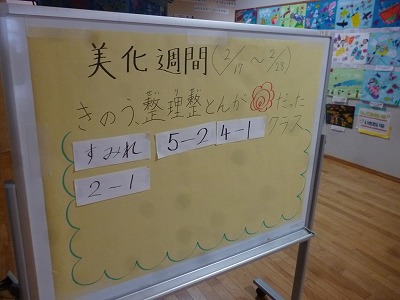 美化週間(2/17～2/28)
きのう、整理整とんが だった
クラス
すみれ 5-2 4-1
2-1